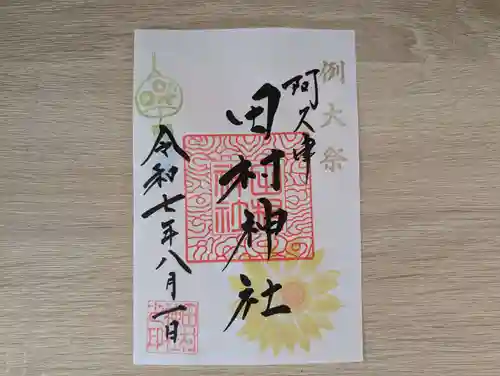 例大祭
阿久津
田村神社
令和七年八月一日
田村神社